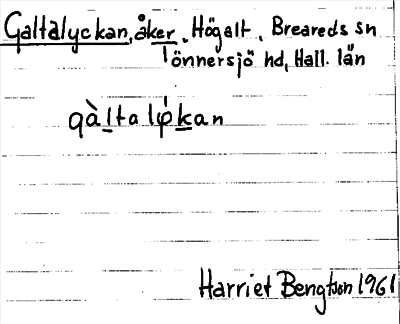 Galtalyckan, åker. Högalt, Breareds sn
Tönnersjö hd, Hall. län
gàltalýkan
Harriet Bengtson 1961